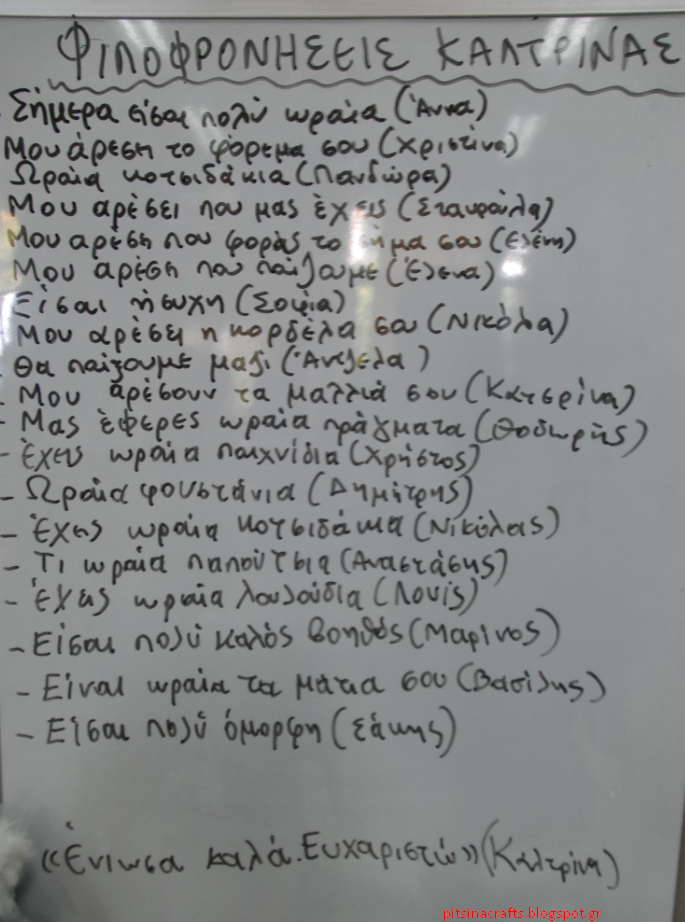 ΦΙΛΟΦΡΟΝΗΣΕΙΣ ΚΑΛΤΡΙΝΑΣ
Σήμερα είσαι πολύ ωραία (Άννα)
Μου άρεση το φόρεμα σου (Χριστίνα)
Ωραία κοτσιδάκια (Πανδώρα)
Μου αρέσει που μας έχεις (Σταυρούλα)
Μου αρέση που φοράς το σήμα σου (Ελένη)
Μου αρέση που παίζουμε (Έλενα)
Είσαι ήσυχη (Σοφία)
Μου αρέσει η κορδέλα σου (Νικόλα)
Θα παίζουμε μαζί (Άντζελα)
- Μου αρέσουν τα μαλλιά σου (Κατερίνα)
- Μας έφερες ωραία πράγματα (Θοδωρής)
- Έχεις ωραία παιχνίδια (Χρήστος)
- Ωραία φουστάνια (Δημήτρης)
- Έχεις ωραία κοτσιδάκια (Νικόλας)
- Τι ωραία παπούτσια (Αναστάσης)
- Έχεις ωραία λουλούδια (Λουίς)
- Είσαι πολύ καλός βοηθός (Μαρίνος)
- Είναι ωραία τα μάτια σου (Βασίλης)
- Είσαι πολύ όμορφη (Σάκης)
«Ένιωσα καλά. Ευχαριστώ» (Καλτρίνα)
pitsinacrafts.blogspot.gr